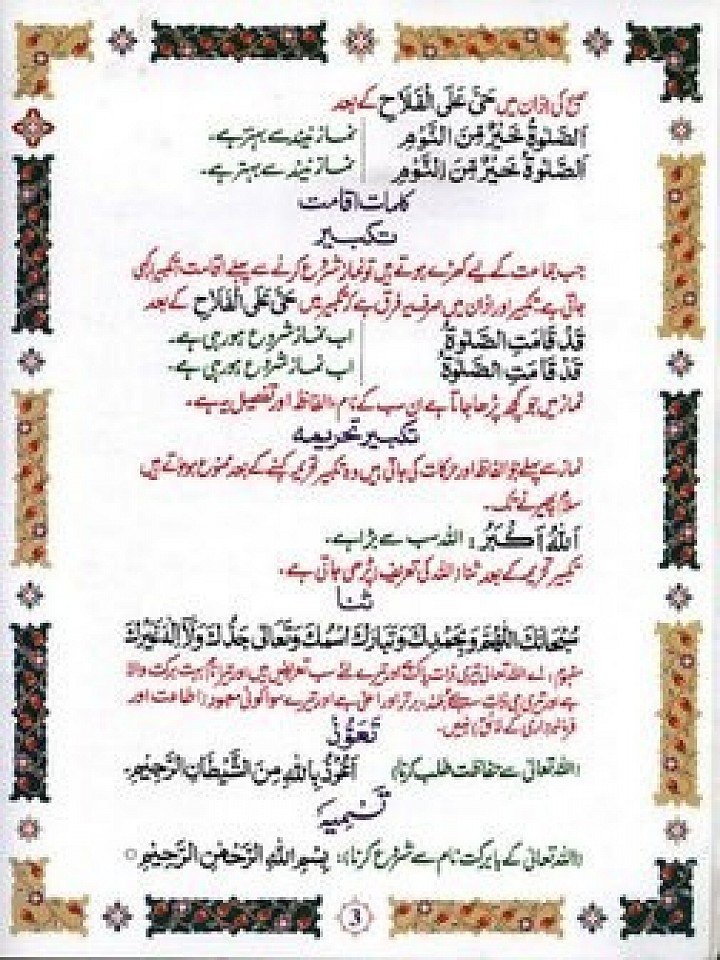 صبح کی اذان میں حَیَّ عَلَی الْفَلَاحِ کے بعد
اَلصَّلٰوةُ خَیْرٌ مِّنَ النَّوْمِ | نماز نیند سے بہتر ہے۔
اَلصَّلٰوةُ خَیْرٌ مِّنَ النَّوْمِ | نماز نیند سے بہتر ہے۔
کلمات اقامت
تکبیر
جب جماعت کے لیے کھڑے ہوتے ہیں تو نماز شروع کرنے سے پہلے اقامت (تکبیر) کہی
جاتی ہے۔ تکبیر اور اذان میں صرف یہ فرق ہے کہ تکبیر میں حَیَّ عَلَی الْفَلَاحِ کے بعد
قَدْ قَامَتِ الصَّلٰوةُ | اب نماز شروع ہو رہی ہے۔
قَدْ قَامَتِ الصَّلٰوةُ | اب نماز شروع ہو رہی ہے۔
نماز میں جو کچھ پڑھا جاتا ہے ان سب کے نام، الفاظ اور تفصیل یہ ہے۔
تکبیر تحریمہ
نماز سے پہلے جو الفاظ اور حرکات کی جاتی ہیں وہ تکبیر تحریمہ کہنے کے بعد ممنوع ہو جاتے ہیں
سلام پھیرنے تک۔
اَللّٰهُ اَکْبَرُ : اللہ سب سے بڑا ہے۔
تکبیر تحریمہ کے بعد ثنا (اللہ کی تعریف) پڑھی جاتی ہے۔
ثنا
سُبْحَانَكَ اللّٰهُمَّ وَبِحَمْدِكَ وَتَبَارَكَ اسْمُكَ وَتَعَالٰی جَدُّكَ وَلَآ اِلٰهَ غَیْرُكَ
مفہوم : اے اللہ تعالیٰ تیری ذات پاک ہے اور تیرے لئے سب تعریفیں ہیں اور تیرا نام بہت برکت والا
ہے اور تیری ہی ذات سب سے بلند، برتر اور اعلیٰ ہے اور تیرے سوا کوئی معبود (اطاعت اور
فرمانبرداری کے لائق) نہیں۔
تَعَوُّذْ
(اللہ تعالیٰ سے حفاظت طلب کرنا) اَعُوْذُ بِاللّٰهِ مِنَ الشَّیْطَانِ الرَّجِیْمِ۔
تَسْمِیَہ
(اللہ تعالیٰ کے بابرکت نام سے شروع کرنا) : بِسْمِ اللّٰهِ الرَّحْمٰنِ الرَّحِیْمِ ○
3